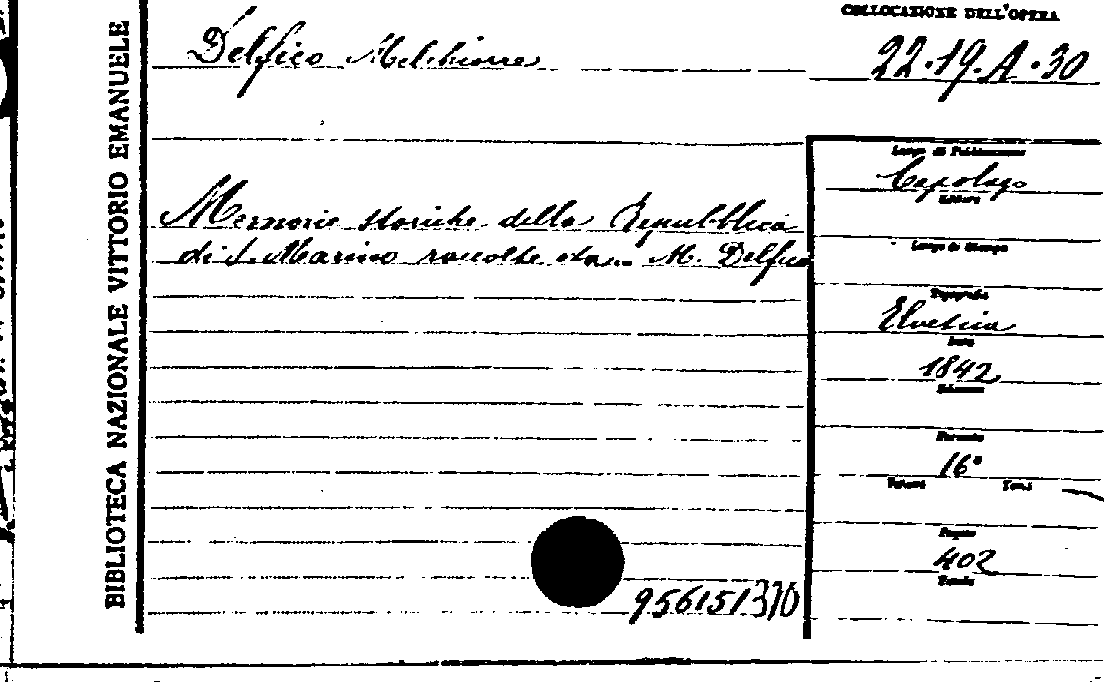 BIBLIOTECA NAZIONALE VITTORIO EMANUELE
Delfico Melchiorre
COLLOCAZIONE DELL'OPERA
22.19.A.30
Memorie storiche della Repubblica
di S. Marino raccolte da... M. Delfico
Luogo di Pubblicazione
Capolago
Editore
Luogo di Stampa
Tipografia
Elvetica
Data
1842
Edizione
Formato
16°
Volumi Tomi
Pagine
402
Tavole
956151370